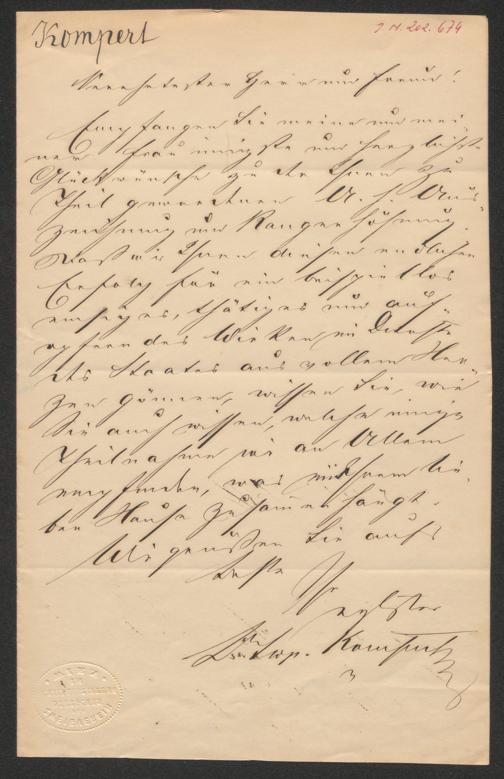 Kompert
J.N. 202.674
Verehrtester Herr und Freund!
Empfangen Sie meine und mei-
ner Frau innigste und herzlichste
Glückwünsche zu der Ihnen zu
Theil gewordenen A. h. Aus-
zeichnung und Rangerhöhung.
Daß wir Ihnen diesen endlichen
Erfolg für ein beispiellos
emsiges, thätiges und auf-
opferndes Wirken im Dienste
des Staates aus vollem Her-
zen gönnen, wissen Sie, wie
Sie auch wissen, welche innige
Theilnahme wir an Allem
empfinden, was mit Ihrem lie-
ben Hause zusammenhängt.
Wir grüßen Sie aufs
Beste
Ihr
Leop. Kompert